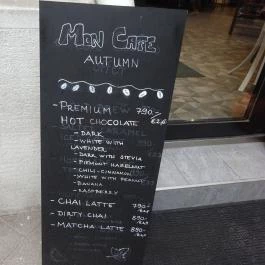 MON CAFE
AUTUMN
- PREMIUM 790.-
HOT CHOCOLATE
- DARK
- WHITE WITH
LAVENDER
- DARK WITH STEVIA
- PIEMONT HAZELNUT
- CHILI-CINNAMON
- WHITE WITH PEANUT
BANANA
- RASPBERRY
- CHAI LATTE 790.-
- DIRTY CHAI 890.-
- MATCHA LATTE 890.-